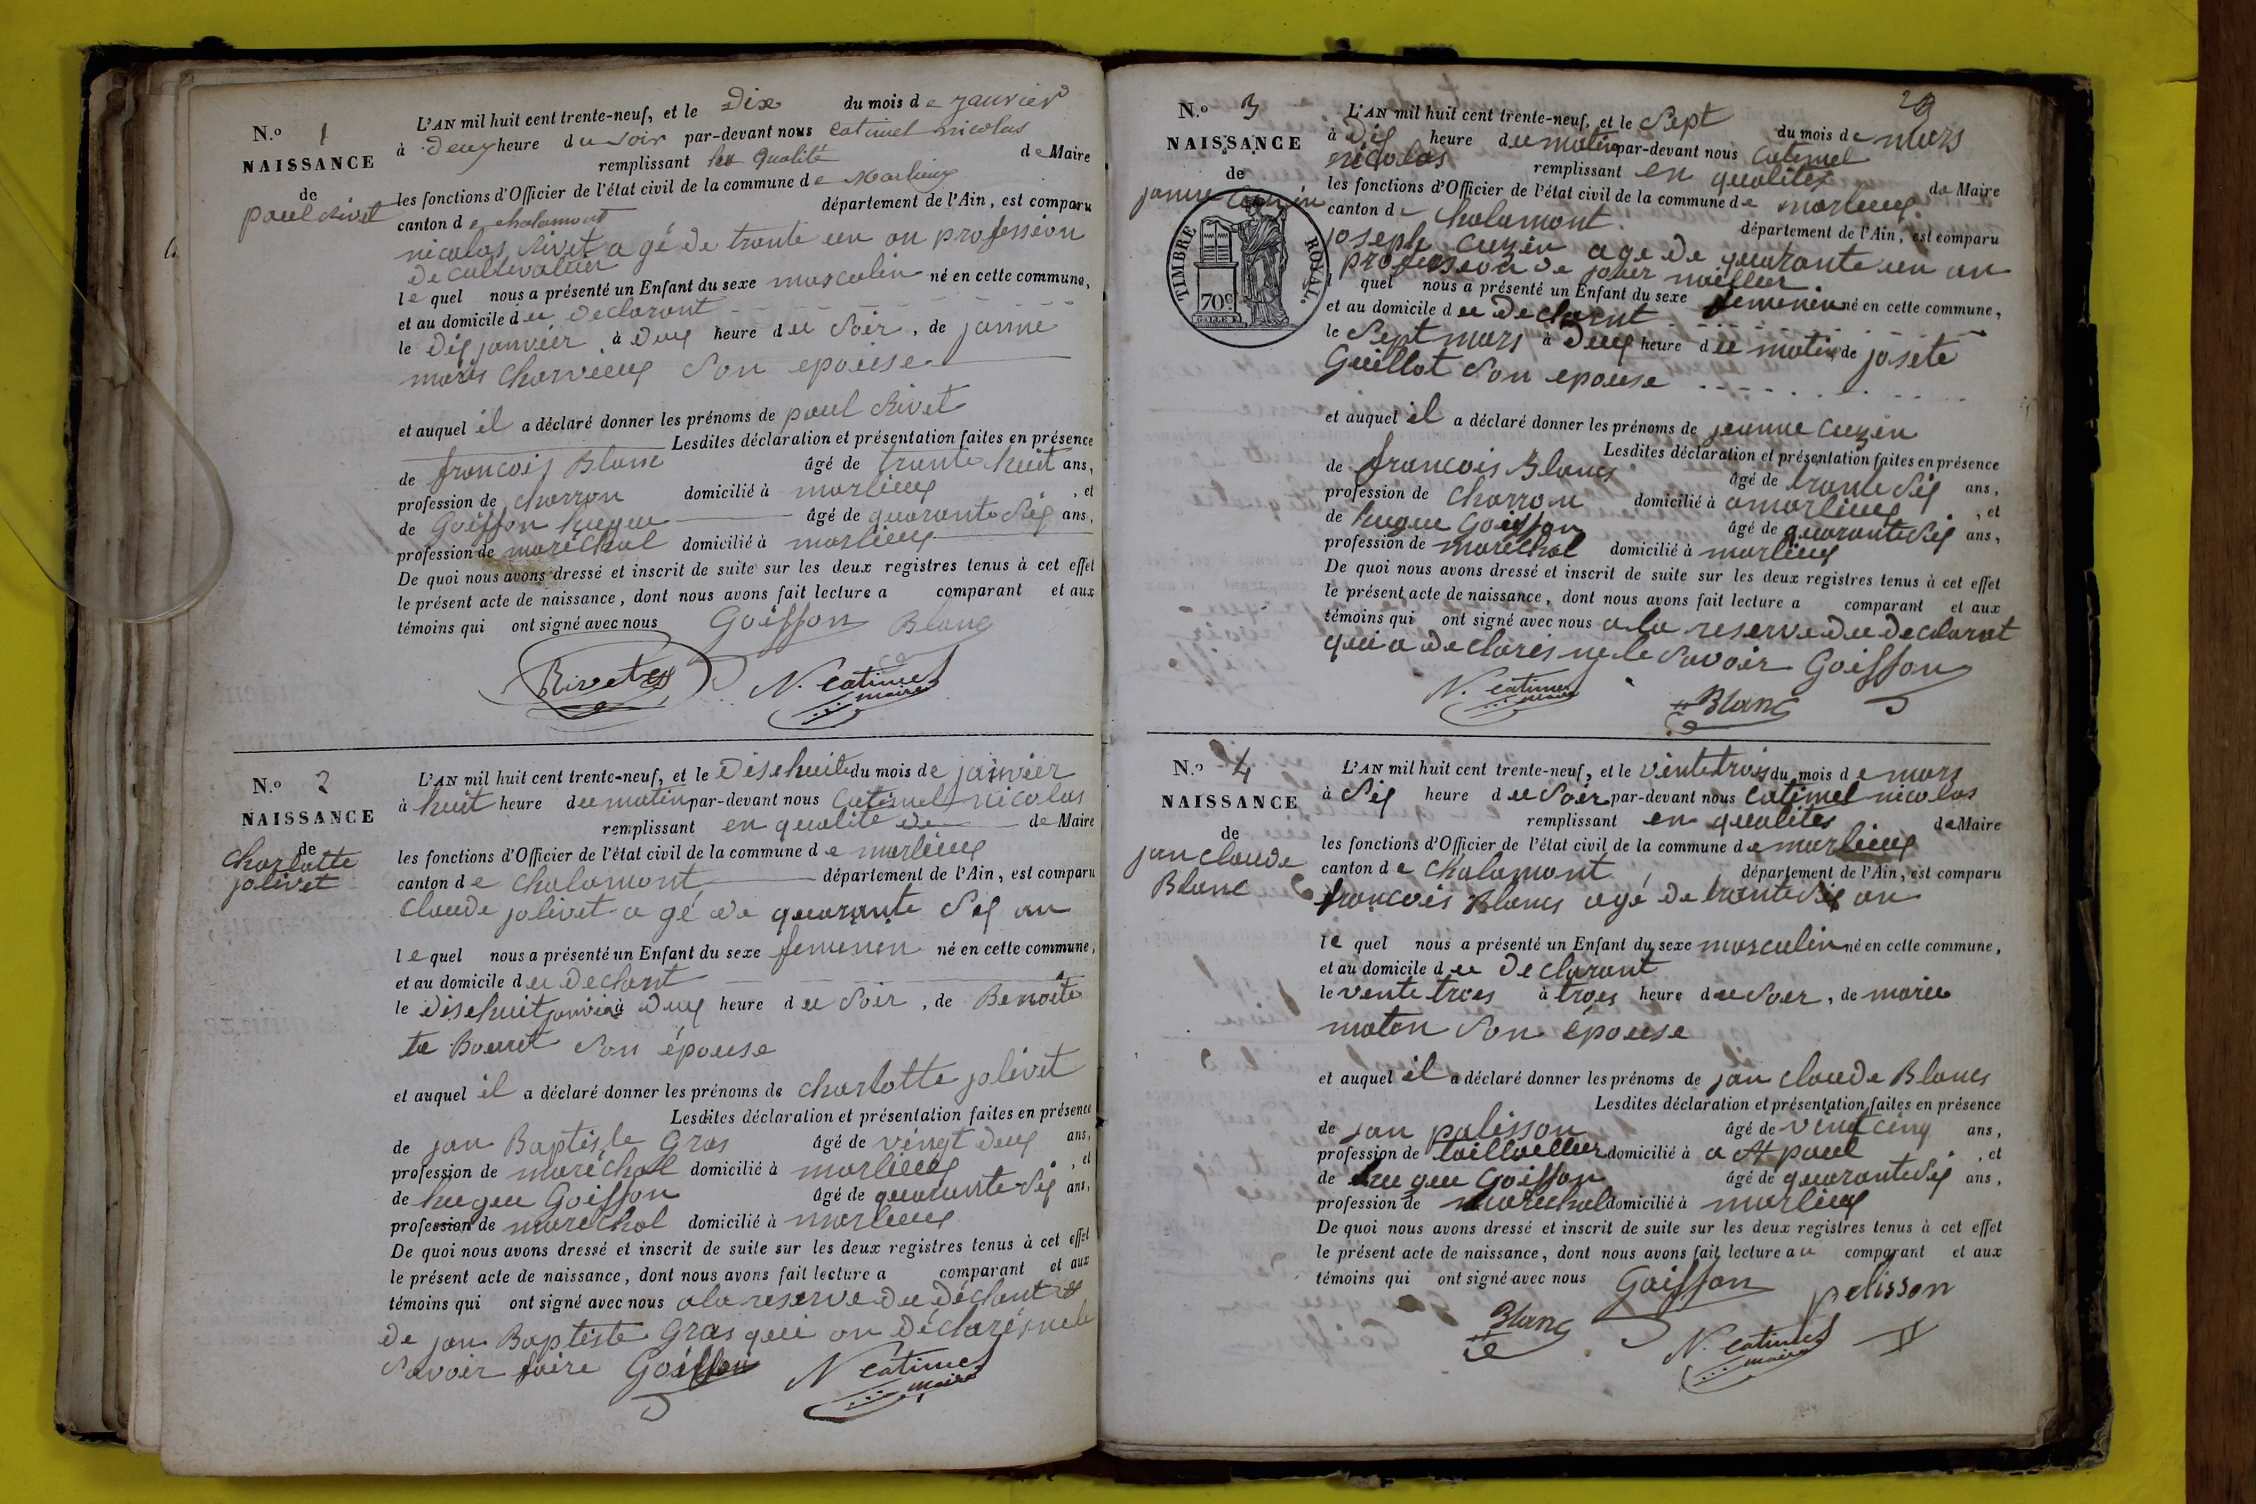 N.o 1
NAISSANCE
de
paul Rivet
L'AN mil huit cent trente-neuf, et le Dix du mois de janvier
à deux heure du soir par-devant nous Catimel nicolas
remplissant qualité de Maire
les fonctions d'Officier de l'état civil de la commune de Marlieux
canton de chalamont département de l'Ain, est comparu
nicolas Rivet a gé de trante un an profession
de cultivateur
le quel nous a présenté un Enfant du sexe masculin né en cette commune,
et au domicile du declarant
le dix janvier à deux heure du soir, de janne
marie Charvieux son epouise
et auquel il a déclaré donner les prénoms de paul Rivet
Lesdites déclaration et présentation faites en présence
de francois Blanc âgé de trante huit ans,
profession de charron domicilié à marlieux, et
de Goiffon hugue âgé de quarante six ans,
profession de maréchal domicilié à marlieux
De quoi nous avons dressé et inscrit de suite sur les deux registres tenus à cet effet
le présent acte de naissance, dont nous avons fait lecture a comparant et aux
témoins qui ont signé avec nous Goiffon Blanc
Rivet N. Catimel
maire
N.o 2
NAISSANCE
de
Charlotte
jolivet
L'AN mil huit cent trente-neuf, et le Disehuite du mois de janvier
à huit heure du matin par-devant nous Catimel nicolas
remplissant en qualité de de Maire
les fonctions d'Officier de l'état civil de la commune de marlieux
canton de Chalamont département de l'Ain, est comparu
Claude jolivet a gé de quarante six an
le quel nous a présenté un Enfant du sexe femenin né en cette commune,
et au domicile du declant
le disehuit janvier à deux heure du soir, de Benoite
te Bouret son épouse
et auquel il a déclaré donner les prénoms de charlotte jolivet
Lesdites déclaration et présentation faites en présence
de jan Baptiste Gras âgé de vingt deux ans,
profession de maréchall domicilié à marlieux, et
de hugue Goiffon âgé de quarante six ans,
profession de maréchal domicilié à marlieux
De quoi nous avons dressé et inscrit de suite sur les deux registres tenus à cet effet
le présent acte de naissance, dont nous avons fait lecture a comparant et aux
témoins qui ont signé avec nous a la reserve du déclant
de jan Baptiste Gras qui on déclaré ne le
savoir faire Goiffon N Catimel
maire
29
N.o 3
NAISSANCE
de
janne Cuzin
TIMBRE ROYAL.
70c
L'AN mil huit cent trente-neuf, et le Sept du mois de mars
à dix heure du matin par-devant nous Catimel
nicolas remplissant en qualites de Maire
les fonctions d'Officier de l'état civil de la commune de marlieux
canton de Chalamont département de l'Ain, est comparu
joseph cuzin age de quarante un an
profession de
quel nous a présenté un Enfant du sexe femenin né en cette commune,
et au domicile du declarnt
le Sept mars à deux heure du matin de josete
Guillot son epouse
et auquel il a déclaré donner les prénoms de jeanne cuzin
Lesdites déclaration et présentation faites en présence
de francois Blancs âgé de trante six ans,
profession de charron domicilié à a marlieux, et
de hugue Goiffon âgé de quarante six ans,
profession de marechal domicilié à marlieux
De quoi nous avons dressé et inscrit de suite sur les deux registres tenus à cet effet
le présent acte de naissance, dont nous avons fait lecture a comparant et aux
témoins qui ont signé avec nous a la reserve du declarnt
qui a declares ne le savoir Goiffon
N. Catimel
maire
Blanc
N.o 4
NAISSANCE
de
jan claude
Blanc
L'AN mil huit cent trente-neuf, et le vinte trois du mois de mars
à six heure du soir par-devant nous Catimel nicolas
remplissant en qualites de Maire
les fonctions d'Officier de l'état civil de la commune de marlieux
canton de Chalamont, département de l'Ain, est comparu
francois Blancs agé de trante six an
le quel nous a présenté un Enfant du sexe masculin né en cette commune,
et au domicile du declarant
le vente trois à trois heure du soer, de marie
maton son épouse
et auquel il a déclaré donner les prénoms de jan claude Blancs
Lesdites déclaration et présentation faites en présence
de jan palisson âgé de vint cinq ans,
profession de domicilié à a st paul, et
de hugue Goiffon âgé de quarante six ans,
profession de marechal domicilié à marlieux
De quoi nous avons dressé et inscrit de suite sur les deux registres tenus à cet effet
le présent acte de naissance, dont nous avons fait lecture au comparant et aux
témoins qui ont signé avec nous Goiffon pelisson
Blanc
N. Catimel
maire